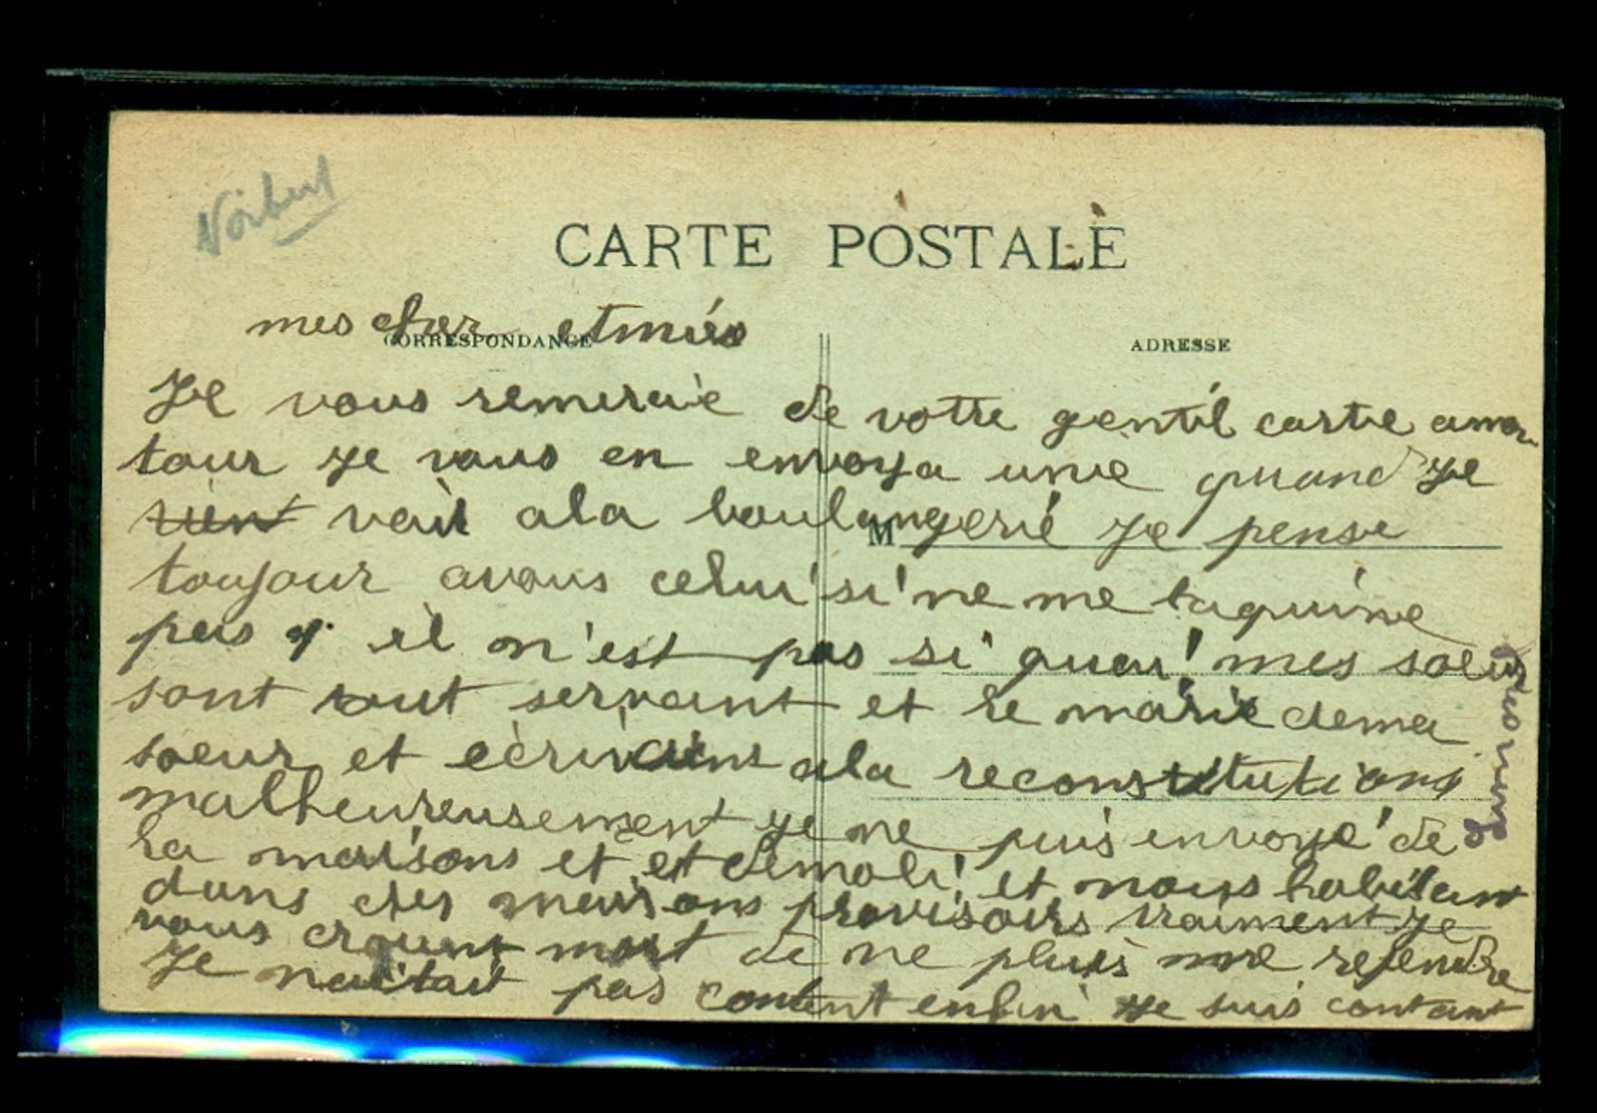 Norbert
CARTE POSTALE
mes cher
CORRESPONDANCE
ADRESSE
Je vous remercie de votre gentil carte amon
tour je vous en envoya une quand je
vait ala boulangerie je pense
M
toujour avous celui si ne me taquine
pas il n'est pas si mes soeur
sont tout servant et le marie dema
soeur et ecrivains ala reconstitutions
malheureusement je ne puis envoyé de
la maisons et et demoli et nous habitant
dans des maisons provisoirs vraiment je
vous croient mort de ne pluis me
Je naitait pas content enfin je suis contant